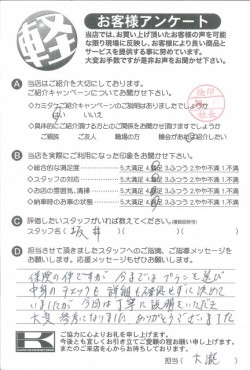 軽
お客様アンケート
当店では、お買い上げ頂いたお客様の声を可能
な限り現場に反映し、お客様により良い商品と
サービスを提供する事に努めています。
大変お手数ですが是非お声をお聞かせ下さい。
A 当店はご紹介を大切にしております。
ご紹介キャンペーンについてお聞かせ下さい。
◇カミタケご紹介キャンペーンのご説明はありましたでしょうか
はい いいえ
◇具体的にご紹介頂ける方とのご関係をお聞かせ頂けますでしょうか
ご親族 ご友人 職場の方 機会がありお声がけ
B 当店を実際にご利用になった印象をお聞かせ下さい。
◇総合的な満足度 5.大満足 4.満足 3.ふつう 2.やや不満 1.不満
◇スタッフの対応 5.大満足 4.満足 3.ふつう 2.やや不満 1.不満
◇お店の雰囲気、清掃 5.大満足 4.満足 3.ふつう 2.やや不満 1.不満
◇納車時のお車の状態 5.大満足 4.満足 3.ふつう 2.やや不満 1.不満
C 評価したいスタッフがいれば教えてください。(複数回答可)
スタッフ名( 坂井 )( )( )
D 担当させて頂きましたスタッフへのご指摘、ご指導メッセージを
お願いします。応援メッセージもぜひお願いします。
保険の件ですが 今まではプランを選び
中身のチェックも 詳細も確認もせずに決めて
いましたが 今回は丁寧に説明をいただき
大変 参考になりました ありがとうございました
ご協力に心よりお礼を申し上げます。
今後とも宜しくお引き立てご愛顧の程お願い申し上げます。
またのご来店を心からお待ちしております。
担当( 大瀧 )